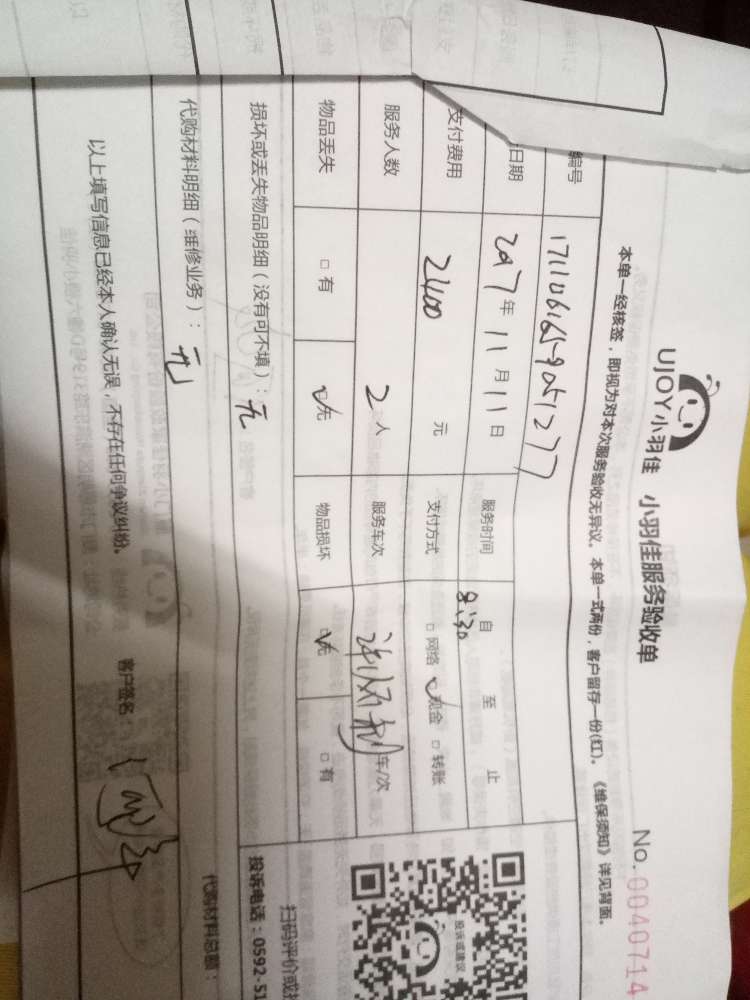 UJOY小羽佳 小羽佳服务验收单
No.0040714
本单一经核签，即视为对本次服务验收无异议。本单一式两份，客户留存一份(红)。《维保须知》详见背面。
编号
日期 2017年11月11日 服务时间 自8:30 至 止
支付费用 2400 元 支付方式 □网络 ☑现金 □转账
服务人数 2人 服务车次 车/次
物品丢失 □有 ☑无 物品损坏 ☑无 □有
损坏或丢失物品明细（没有可不填）：无
代购材料明细（维修业务）：无
代购材料总额：
以上填写信息已经本人确认无误，不存在任何争议纠纷。 客户签名：
投诉或建议
扫码评价或
投诉电话：0592-51